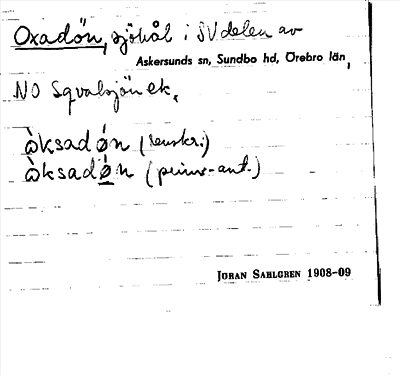 Oxadön, sjöhål i SV delen av
Askersunds sn, Sundbo hd, Örebro län,
NO Sqvalsjön ek.
òksadǿn (renskr.)
òksadǿn (primo-ant.)
JÖRAN SAHLGREN 1908-09